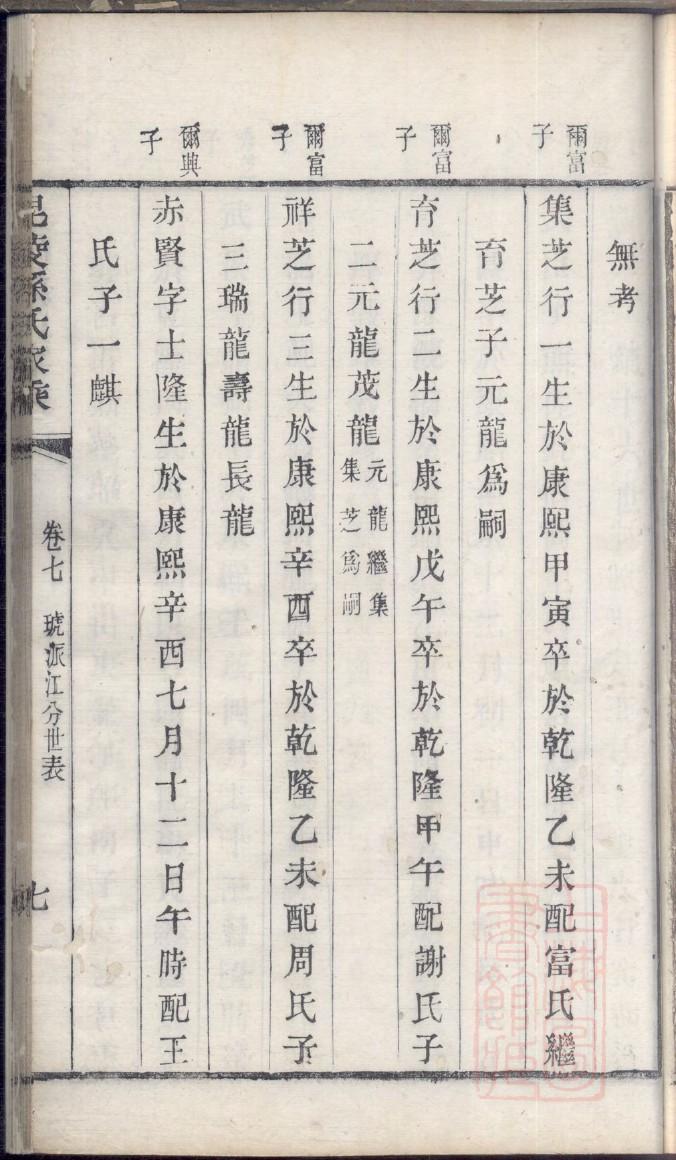 無考
爾富子
集芝行一生於康熙甲寅卒於乾隆乙未配富氏繼
育芝子元龍爲嗣
爾富子
育芝行二生於康熙戊午卒於乾隆甲午配謝氏子
二元龍茂龍元龍繼集集芝爲嗣
爾富子
祥芝行三生於康熙辛酉卒於乾隆乙未配周氏子
三瑞龍壽龍長龍
爾興子
赤賢字士隆生於康熙辛酉七月十二日午時配王
氏子一麒
毘陵孫氏家乘
卷七 琥派江分世表
七